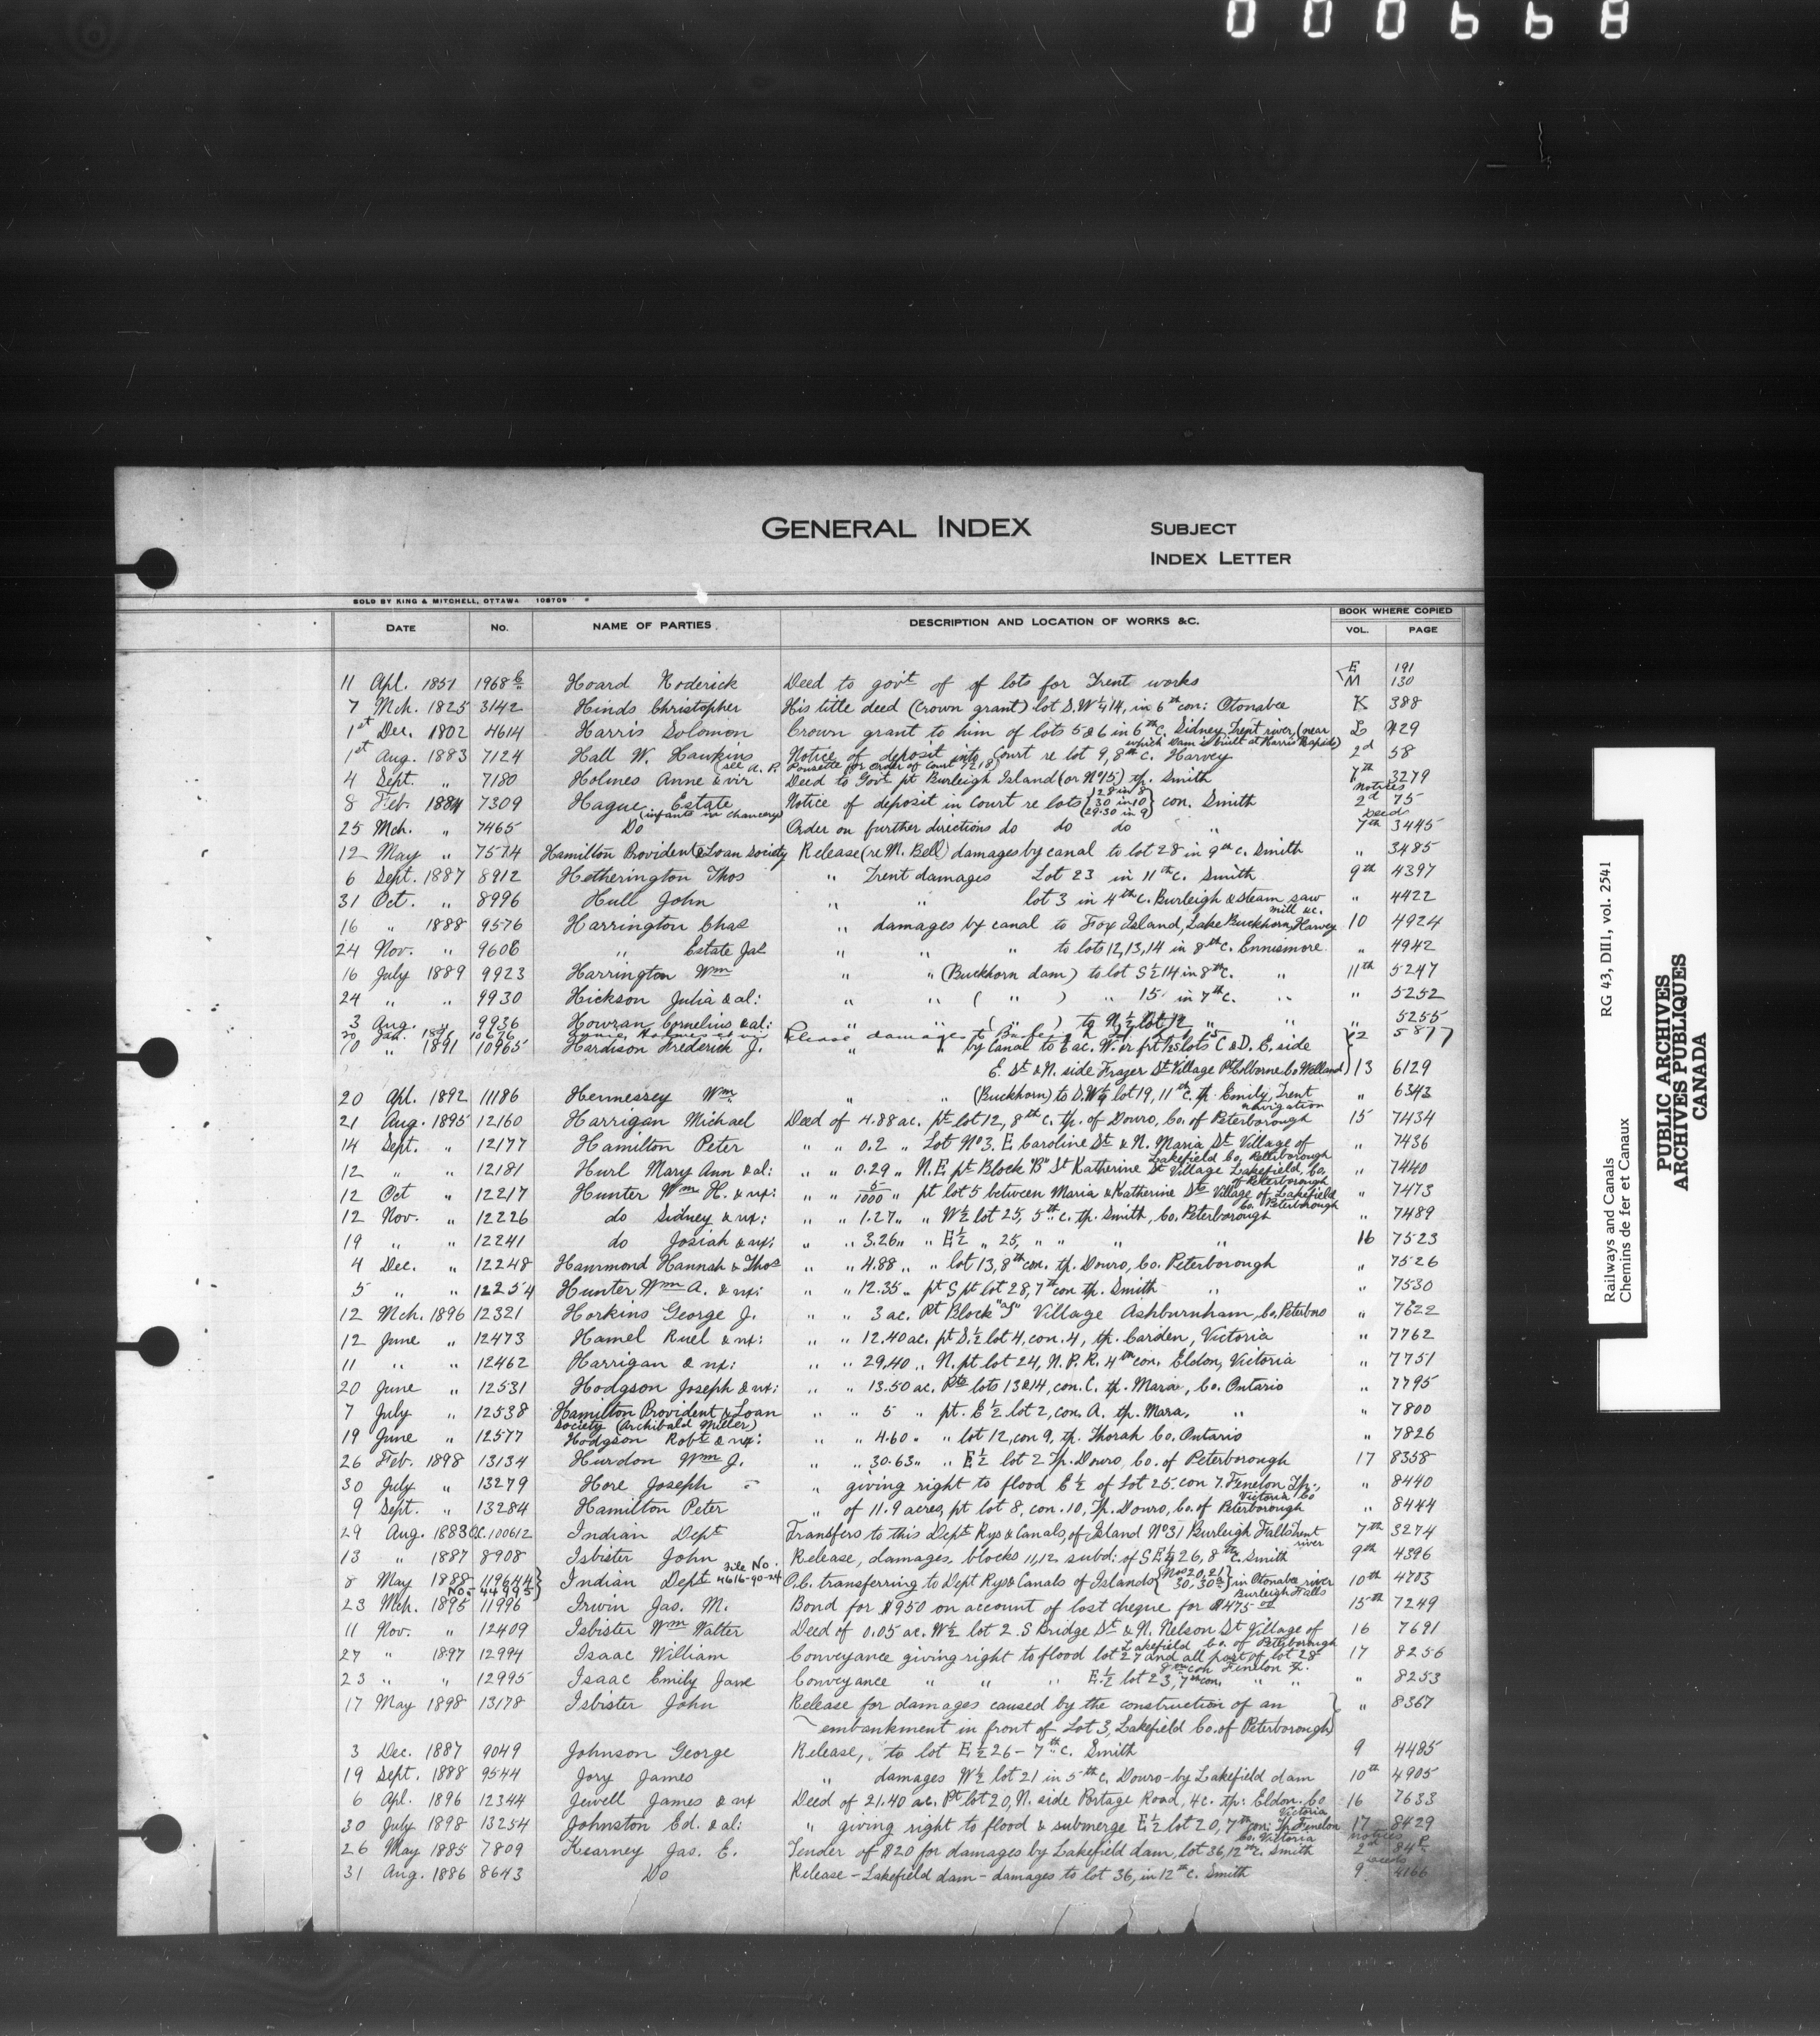 000668
GENERAL INDEX
SUBJECT
INDEX LETTER
SOLD BY KING & MITCHELL, OTTAWA
DATE No. NAME OF PARTIES DESCRIPTION AND LOCATION OF WORKS &C. BOOK WHERE COPIED
VOL. PAGE
11 Apl. 1851 1968 Hoard Roderick Deed to govt of of lots for Trent works E 191
M 130
7 Mch. 1825 3142 Hinds Christopher His title deed (Crown grant) lot S.W¼14, in 6th con: Otonabee K 388
1st Dec. 1802 4614 Harris Solomon Crown grant to him of lots 5&6 in 6th C. Sidney, Trent river (near L 429
which dam is built at Harris Rapids)
1st Aug. 1883 7124 Hall W. Hawkins Notice of deposit into Court re lot 9, 8th C. Harvey 2d 58
(see A. P. Pousette for order of Court 7218)
4 Sept. " 7180 Holmes Anne & vir Deed to Govt pt Burleigh Island (or No 15) tp. Smith 7th 3279
8 Feb. 1884 7309 Hague Estate Notice of deposit in Court re lots {28 in 8 30 in 10 29.30 in 9} con. Smith notices 2d 75
(infants in chancery)
25 Mch. " 7465 Do Order on further directions do do do " Deeds 7th 3445
12 May " 7574 Hamilton Provident & Loan Society Release (re M. Bell) damages by canal to lot 28 in 9th C. Smith " 3485
6 Sept. 1887 8912 Hetherington Thos " Trent damages Lot 23 in 11th C. Smith 9th 4397
31 Oct. " 8996 Hull John " " lot 3 in 4th C. Burleigh & steam saw mill &c. " 4422
16 " 1888 9576 Harrington Chas " damages by canal to Fox Island, Lake Buckhorn, Harvey 10 4924
24 Nov. " 9606 " Estate Jas " " " to lots 12,13,14 in 8th C. Ennismore " 4942
16 July 1889 9923 Harrington Wm " " (Buckhorn dam) to lot S½14 in 8th C. " 11th 5247
24 " " 9930 Hickson Julia & al: " " ( " ) " 15 in 7th C. " " 5252
3 Aug. " 9936 Howran Cornelius & al: " " ( " ) to N½ lot 12 " " " 5255
20 Jan. 1891 10676 Release damages to 12 5877
10 " 1891 10965 Hardison Frederick J. " " by Canal to 6 ac. W. or frt lots C & D. E. side
E. St & N. side Frazer St Village Pt Colborne Co Welland 13 6129
20 Apl. 1892 11186 Hennessey Wm " " (Buckhorn) to S.W¼ lot 19, 11th C. tp. Emily, Trent navigation " 6343
21 Aug. 1895 12160 Harrigan Michael Deed of 4.88 ac. pt lot 12, 8th C. tp. of Douro, Co. of Peterborough 15 7434
14 Sept. " 12177 Hamilton Peter " " 0.2 " Lot No 3. E. Caroline St & N. Maria St Village of " 7436
Lakefield Co. Peterborough
12 " " 12181 Hurl Mary Ann & al: " " 0.29 " N.E. pt Block "B" St Katherine St Village Lakefield, Co. " 7440
of Peterborough
12 Oct " 12217 Hunter Wm H. & ux: " " 5/1000 " pt lot 5 between Maria & Katherine Sts Village of Lakefield " 7473
Co. Peterborough
12 Nov. " 12226 do Sidney & ux: " " 1.27 " " W½ lot 25, 5th c. tp. Smith, Co. Peterborough " 7489
19 " " 12241 do Josiah & ux: " " 3.26 " " E½ " 25, " " " " 16 7523
4 Dec. " 12248 Hammond Hannah & Thos " " 4.88 " " lot 13, 8th con. tp. Douro, Co. Peterborough " 7526
5 " " 12254 Hunter Wm A. & ux: " " 12.35 " pt S pt lot 28, 7th con tp. Smith " " 7530
12 Mch. 1896 12321 Horkins George J. " " 3 ac. Pt Block "J" Village Ashburnham, Co. Peterboro " 7622
12 June " 12473 Hamel Ruel & ux: " " 12.40 ac. pt S.½ lot 4, con. 4, tp. Carden, Victoria " 7762
11 " " 12462 Harrigan & ux: " " 29.40 " N. pt lot 24, N.P.R. 4th con. Eldon, Victoria " 7751
20 June " 12531 Hodgson Joseph & ux: " " 13.50 ac. Pts lots 13&14, con. C. tp. Mara, Co. Ontario " 7795
7 July " 12538 Hamilton Provident & Loan " " 5 " pt. E½ lot 2, con. A. tp. Mara, " " 7800
Society (Archibald Miller)
19 June " 12577 Hodgson Robt & ux: " " 4.60 " " lot 12, con 9, tp. Thorah Co. Ontario " 7826
26 Feb. 1898 13134 Hurdon Wm J. " " 30.63 " " E½ lot 2 Tp. Douro, Co. of Peterborough 17 8358
30 July " 13279 Hore Joseph " giving right to flood E½ of Lot 25. con 7. Fenelon Tp., " 8440
Victoria Co
9 Sept. " 13284 Hamilton Peter " of 11.9 acres, pt lot 8, con. 10, Tp. Douro, Co. of Peterborough " 8444
29 Aug. 1883 O.C. 100612 Indian Dept Transfers to this Dept Rys & Canals, of Island No 31 Burleigh Falls Trent river 7th 3274
13 " 1887 8908 Isbister John Release, damages, blocks 11,12 subd: of S E¼ 26, 8th C. Smith 9th 4396
8 May 1888 119644 Indian Dept File No. 4616-90-24 O.C. transferring to Dept Rys & Canals of Islands {Nos 20, 21 30, 30a} in Otonabee river 10th 4703
No. 44995 Burleigh Falls
23 Mch. 1895 11996 Irwin Jas. M. Bond for $950 on account of lost cheque for $475 15th 7249
11 Nov. " 12409 Isbister Wm Walter Deed of 0.05 ac. W½ lot 2 S Bridge St & N. Nelson St Village of 16 7691
Lakefield Co. of Peterborough
27 " 1897 12994 Isaac William Conveyance giving right to flood lot 27 and all part of lot 28 17 8256
8th con Fenelon Tp.
23 " " 12995 Isaac Emily Jane Conveyance " " " E.½ lot 23, 7th con. " " " 8253
17 May 1898 13178 Isbister John Release for damages caused by the construction of an " 8367
embankment in front of Lot 3, Lakefield Co. of Peterborough
3 Dec. 1887 9049 Johnson George Release, to lot E½ 26 - 7th C. Smith 9 4485
19 Sept. 1888 9544 Jory James " damages W½ lot 21 in 5th C. Douro - by Lakefield dam 10th 4905
6 Apl. 1896 12344 Jewell James & ux Deed of 21.40 ac. Pt lot 20, N. side Portage Road, 4c. tp: Eldon. Co Victoria 16 7633
30 July 1898 13254 Johnston Ed. & al: " giving right to flood & submerge E½ lot 20, 7th con: Tp Fenelon 17 8429
Co. Victoria
26 May 1885 7809 Kearney Jas. E. Tender of $20 for damages by Lakefield dam, lot 36, 12th C. Smith notices 2d 84
31 Aug. 1886 8643 Do Release - Lakefield dam - damages to lot 36, in 12th C. Smith deeds 9 4166
Railways and Canals RG 43, DIII, vol. 2541
Chemins de fer et Canaux
PUBLIC ARCHIVES
ARCHIVES PUBLIQUES
CANADA